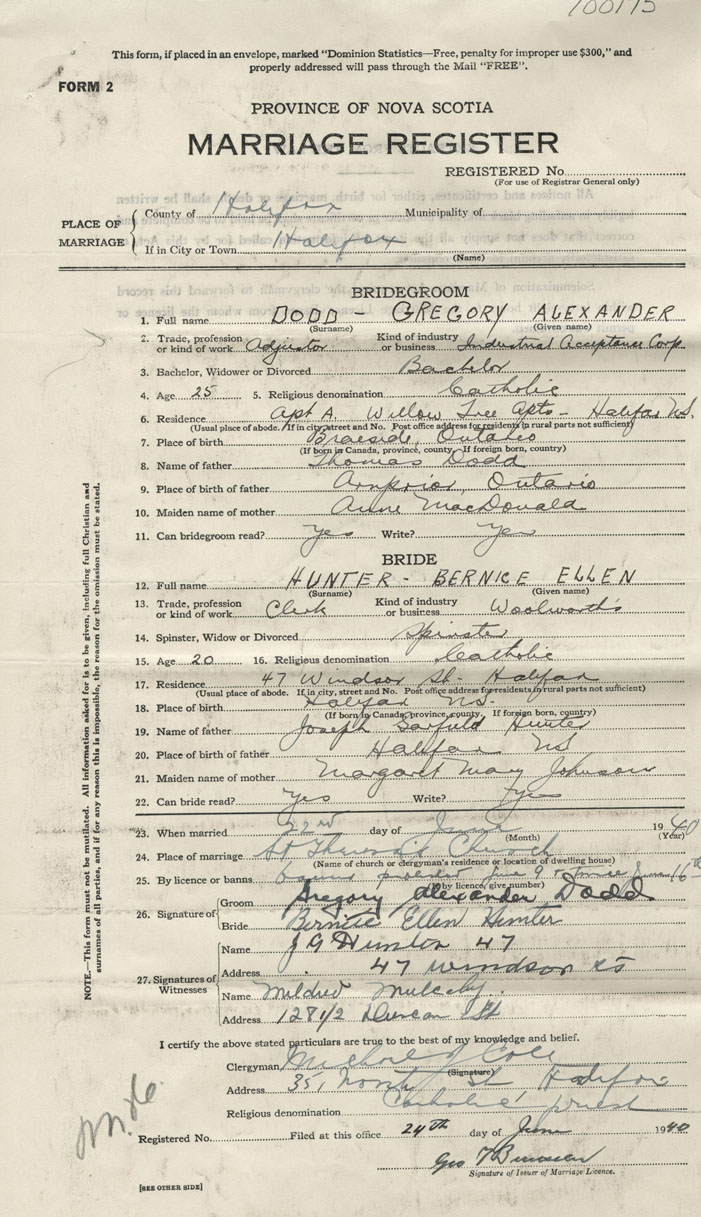 100175
This form, if placed in an envelope, marked "Dominion Statistics—Free, penalty for improper use $300," and
properly addressed will pass through the Mail "FREE".
FORM 2
PROVINCE OF NOVA SCOTIA
MARRIAGE REGISTER
REGISTERED No.
(For use of Registrar General only)
PLACE OF MARRIAGE
County of Halifax Municipality of
If in City or Town Halifax
(Name)
BRIDEGROOM
1. Full name DODD - GREGORY ALEXANDER
(Surname) (Given name)
2. Trade, profession or kind of work Adjustor Kind of industry or business Industrial Acceptance Corp.
3. Bachelor, Widower or Divorced Bachelor
4. Age 25 5. Religious denomination Catholic
6. Residence Apt A. Willow Tree Apts - Halifax N.S.
(Usual place of abode. If in city, street and No. Post office address for residents in rural parts not sufficient)
7. Place of birth Braeside, Ontario
(If born in Canada, province, county, If foreign born, country)
8. Name of father Thomas Dodd
9. Place of birth of father Arnprior, Ontario
10. Maiden name of mother Anne MacDonald
11. Can bridegroom read? Yes Write? Yes
BRIDE
12. Full name HUNTER - BERNICE ELLEN
(Surname) (Given name)
13. Trade, profession or kind of work Clerk Kind of industry or business Woolworth's
14. Spinster, Widow or Divorced Spinster
15. Age 20 16. Religious denomination Catholic
17. Residence 47 Windsor St. Halifax
(Usual place of abode. If in city, street and No. Post office address for residents in rural parts not sufficient)
18. Place of birth Halifax N.S.
(If born in Canada, province, county, If foreign born, country)
19. Name of father Joseph Garfield Hunter
20. Place of birth of father Halifax NS
21. Maiden name of mother Margaret Mary Johnson
22. Can bride read? Yes Write? Yes
23. When married 22nd day of June 1940
(Month) (Year)
24. Place of marriage St Theresa's Church
(Name of church or clergyman's residence or location of dwelling house)
25. By licence or banns banns June 9 June 16th
(If by licence, give number)
26. Signature of
Groom Gregory Alexander Dodd
Bride Bernice Ellen Hunter
27. Signatures of Witnesses
Name J G Hunter 47
Address 47 Windsor St
Name Mildred Mulcahy.
Address 128 1/2 Duncan St
I certify the above stated particulars are true to the best of my knowledge and belief.
Clergyman Michael J Cole
(Signature)
Address 35, North St Halifax
Religious denomination Catholic priest
Registered No. Filed at this office 24th day of June 1940
Geo T
Signature of Issuer of Marriage Licence.
[SEE OTHER SIDE]
NOTE.—This form must not be mutilated. All information asked for is to be given, including full Christian and
surnames of all parties, and if for any reason this is impossible, the reason for the omission must be stated.